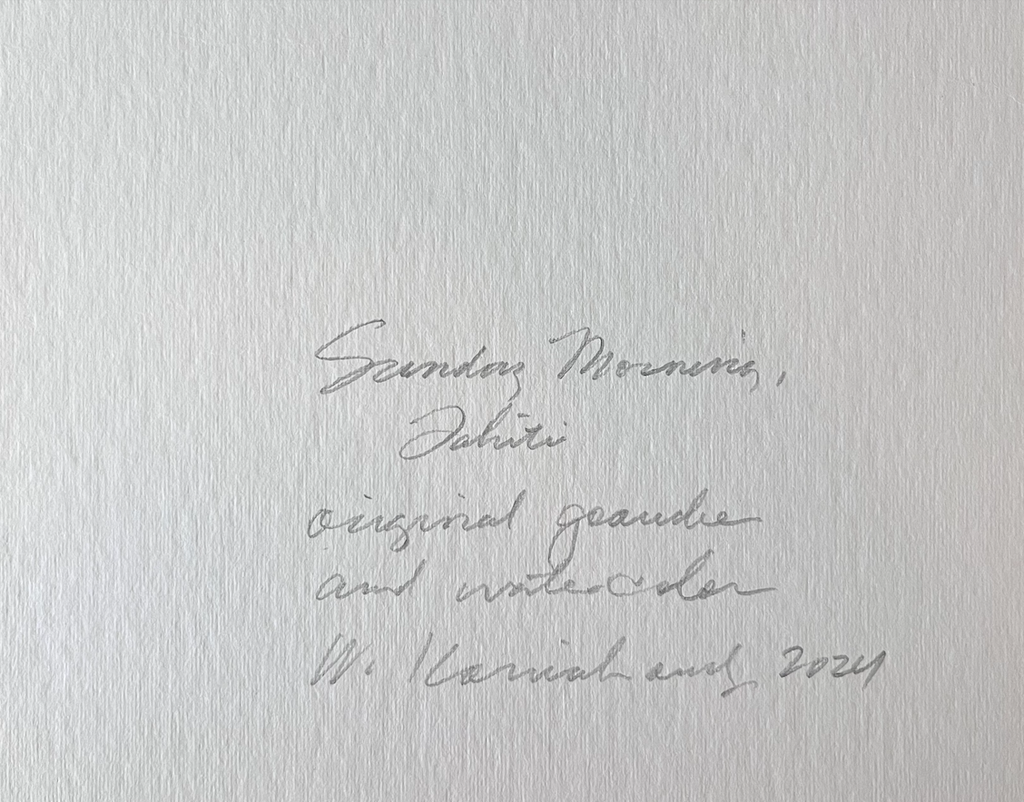 Sunday Morning,
Tahiti
original gouache
and watercolor
W. 2024